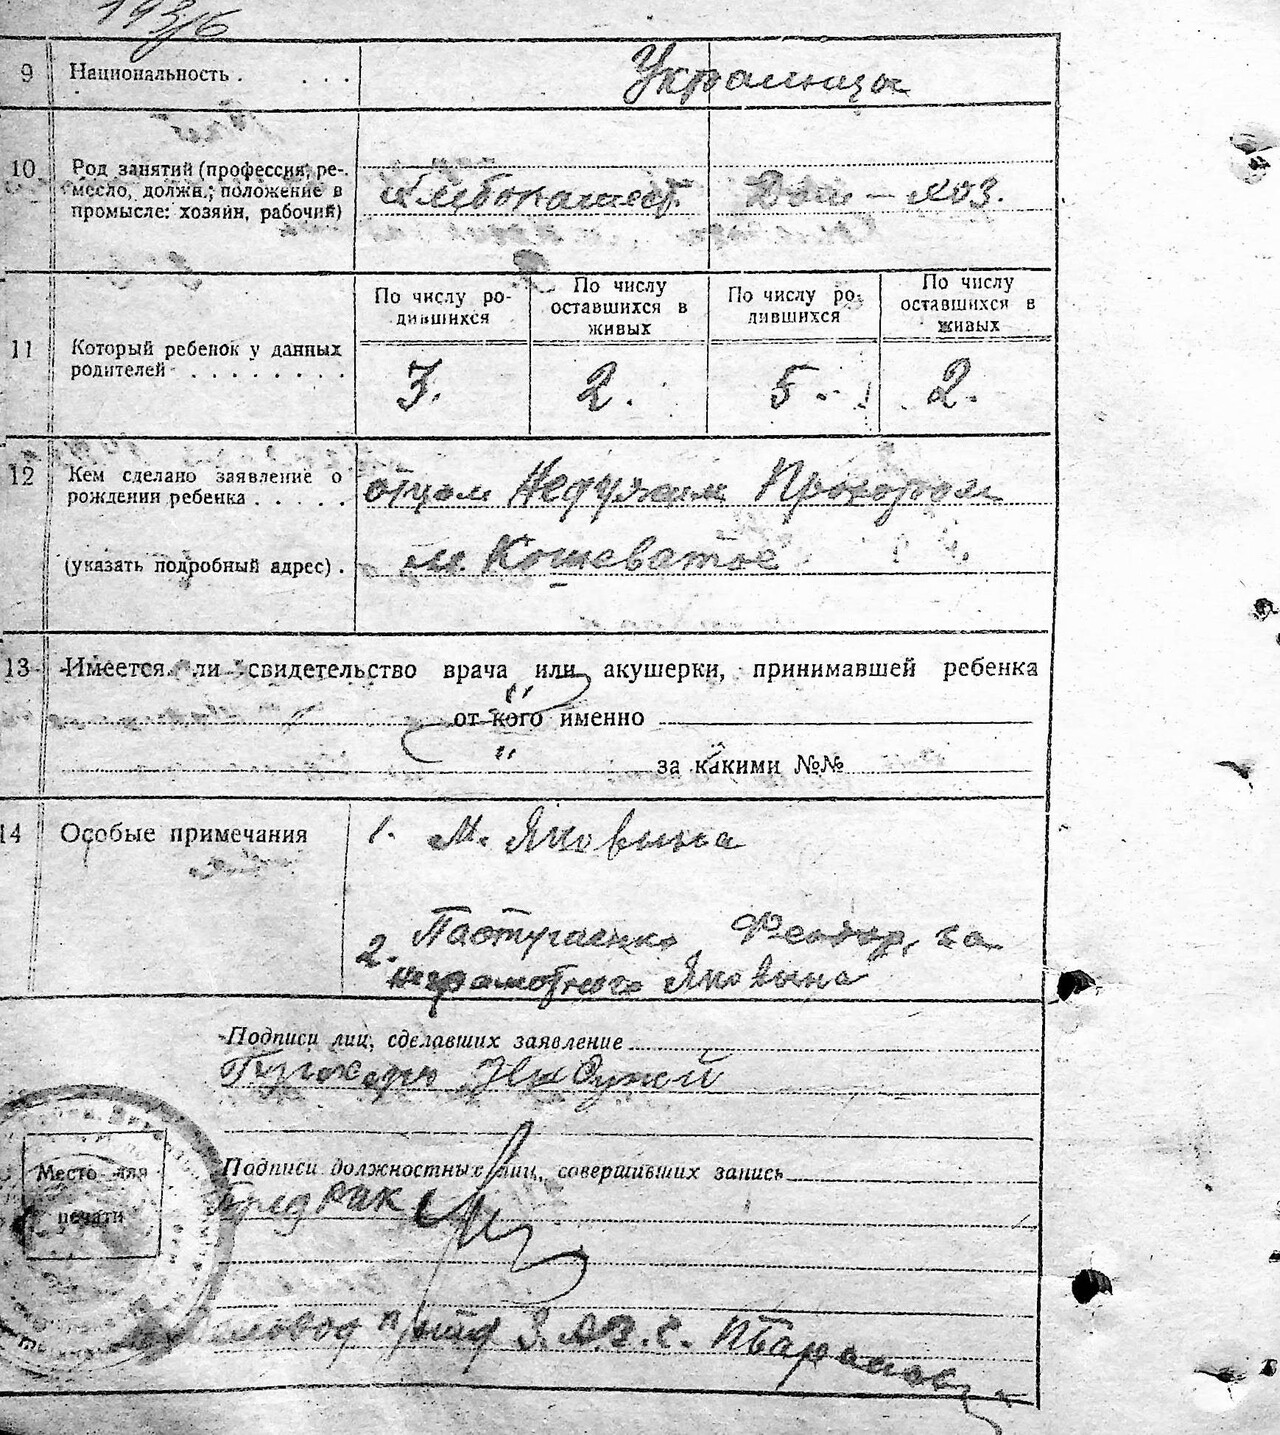 9 Национальность . . . . Украинцы
10 Род занятий (профессия, ре-
месло, должн.; положение в
промысле: хозяин, рабочий)
Хлебопашест. Дом – хоз.
По числу ро-
дившихся
По числу
оставшихся в
живых
По числу ро-
дившихся
По числу
оставшихся в
живых
11 Который ребенок у данных
родителей . . . . . . . .
3. 2. 5. 2.
12 Кем сделано заявление о
рождения ребенка . . . . .
отцом Недужим Прокопом
(указать подробный адрес) . м. Кошеватое
13 Имеется ли свидетельство врача или акушерки, принимавшей ребенка
"
от кого именно
"
за какими №№
14 Особые примечания
1. М. Яковына
2. Феодор, за
неграмотного Яковына
Подписи лиц, сделавших заявление
Недужей
Место для
печати
Подписи должностных лиц, совершивших запись
Пред РИК
З.А.Г.С.